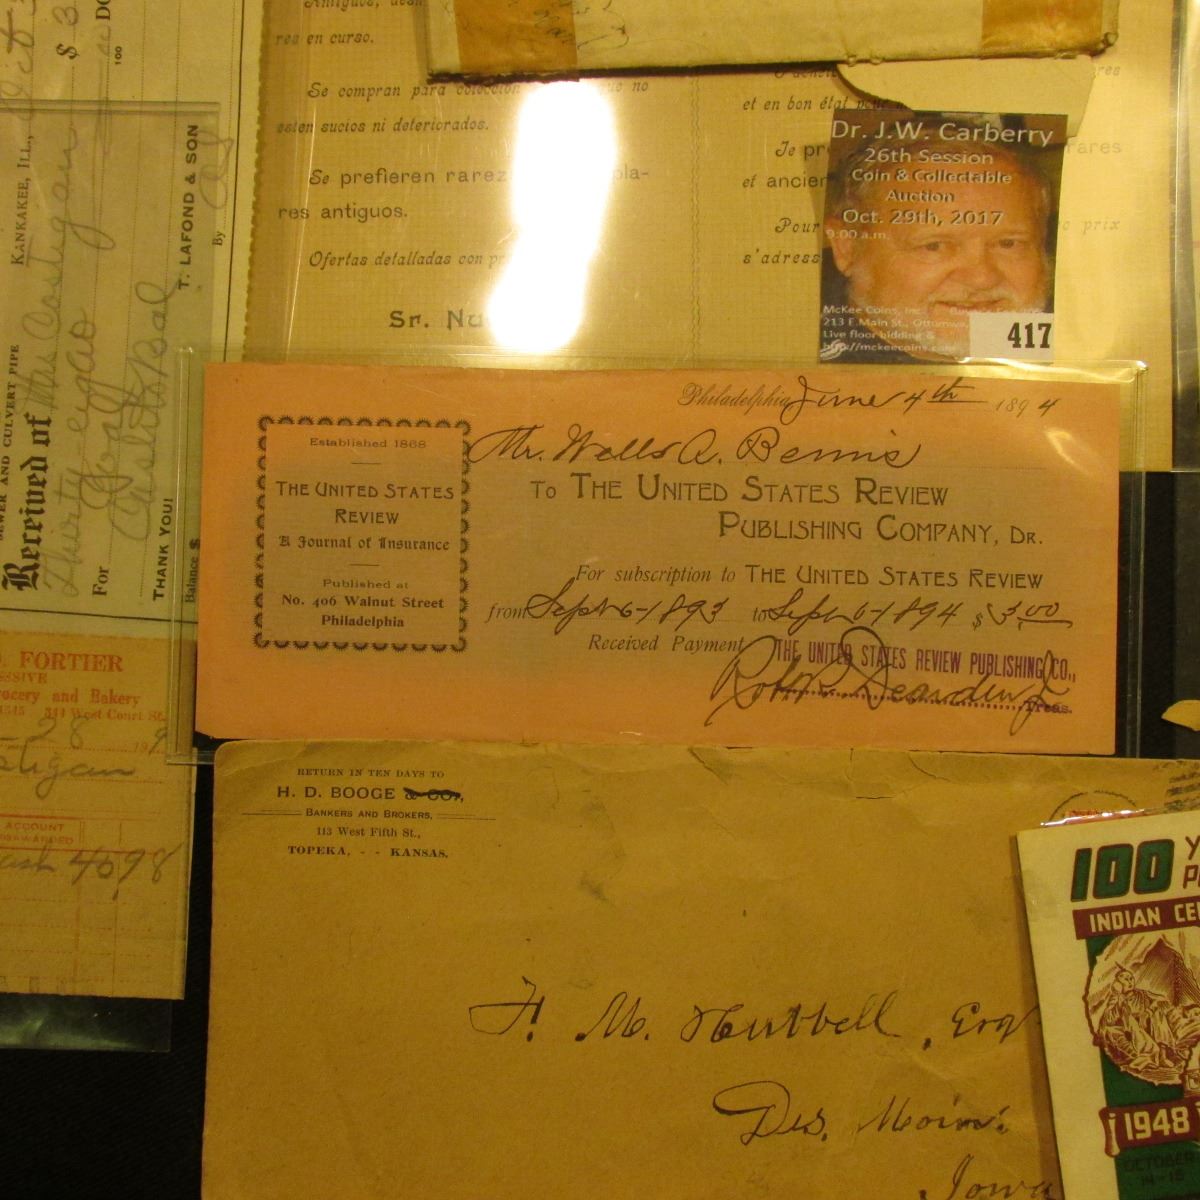 Oct 3
$ 3
DO
100
KANKAKEE, ILL.,
SEWER AND CULVERT PIPE
Received of Mrs Costigan
Thirty-eight
For Coal
THANK YOU!
Balance $
T. LAFOND & SON
By
. FORTIER
SSIVE
rocery and Bakery
344 West Court St.
28 19
stigan
ACCOUNT
FORWARDED
4698
res en curso.
Se compran para colección que no
esten sucios ni deteriorados.
Se prefieren rarez pla-
res antiguos.
Ofertas detalladas con pr
Sr. Nu
et en bon état pour
Je pr rares
et ancien
Pour prix
s'adress
Dr. J.W. Carberry
26th Session
Coin & Collectable
Auction
Oct. 29th, 2017
9:00 a.m.
McKee Coins, Inc.
213 E.Main St., Ottumwa,
Live floor bidding &
http://mckeecoins.com
417
Philadelphia June 4th 1894
Mr. Wells A. Bemis
To THE UNITED STATES REVIEW
PUBLISHING COMPANY, DR.
Established 1868
THE UNITED STATES
REVIEW
A Journal of Insurance
Published at
No. 406 Walnut Street
Philadelphia
For subscription to THE UNITED STATES REVIEW
from Sept 6-1893 to Sept 6-1894 $3.00
Received Payment
THE UNITED STATES REVIEW PUBLISHING CO.,
Robt R Dearden Jr
Treas.
RETURN IN TEN DAYS TO
H. D. BOOGE & CO.,
BANKERS AND BROKERS,
113 West Fifth St.,
TOPEKA, - - KANSAS.
F. M. Hubbell, Esq
Des Moines
Iowa
100 Y
P
INDIAN CE
1948
OCTOBER
14-15